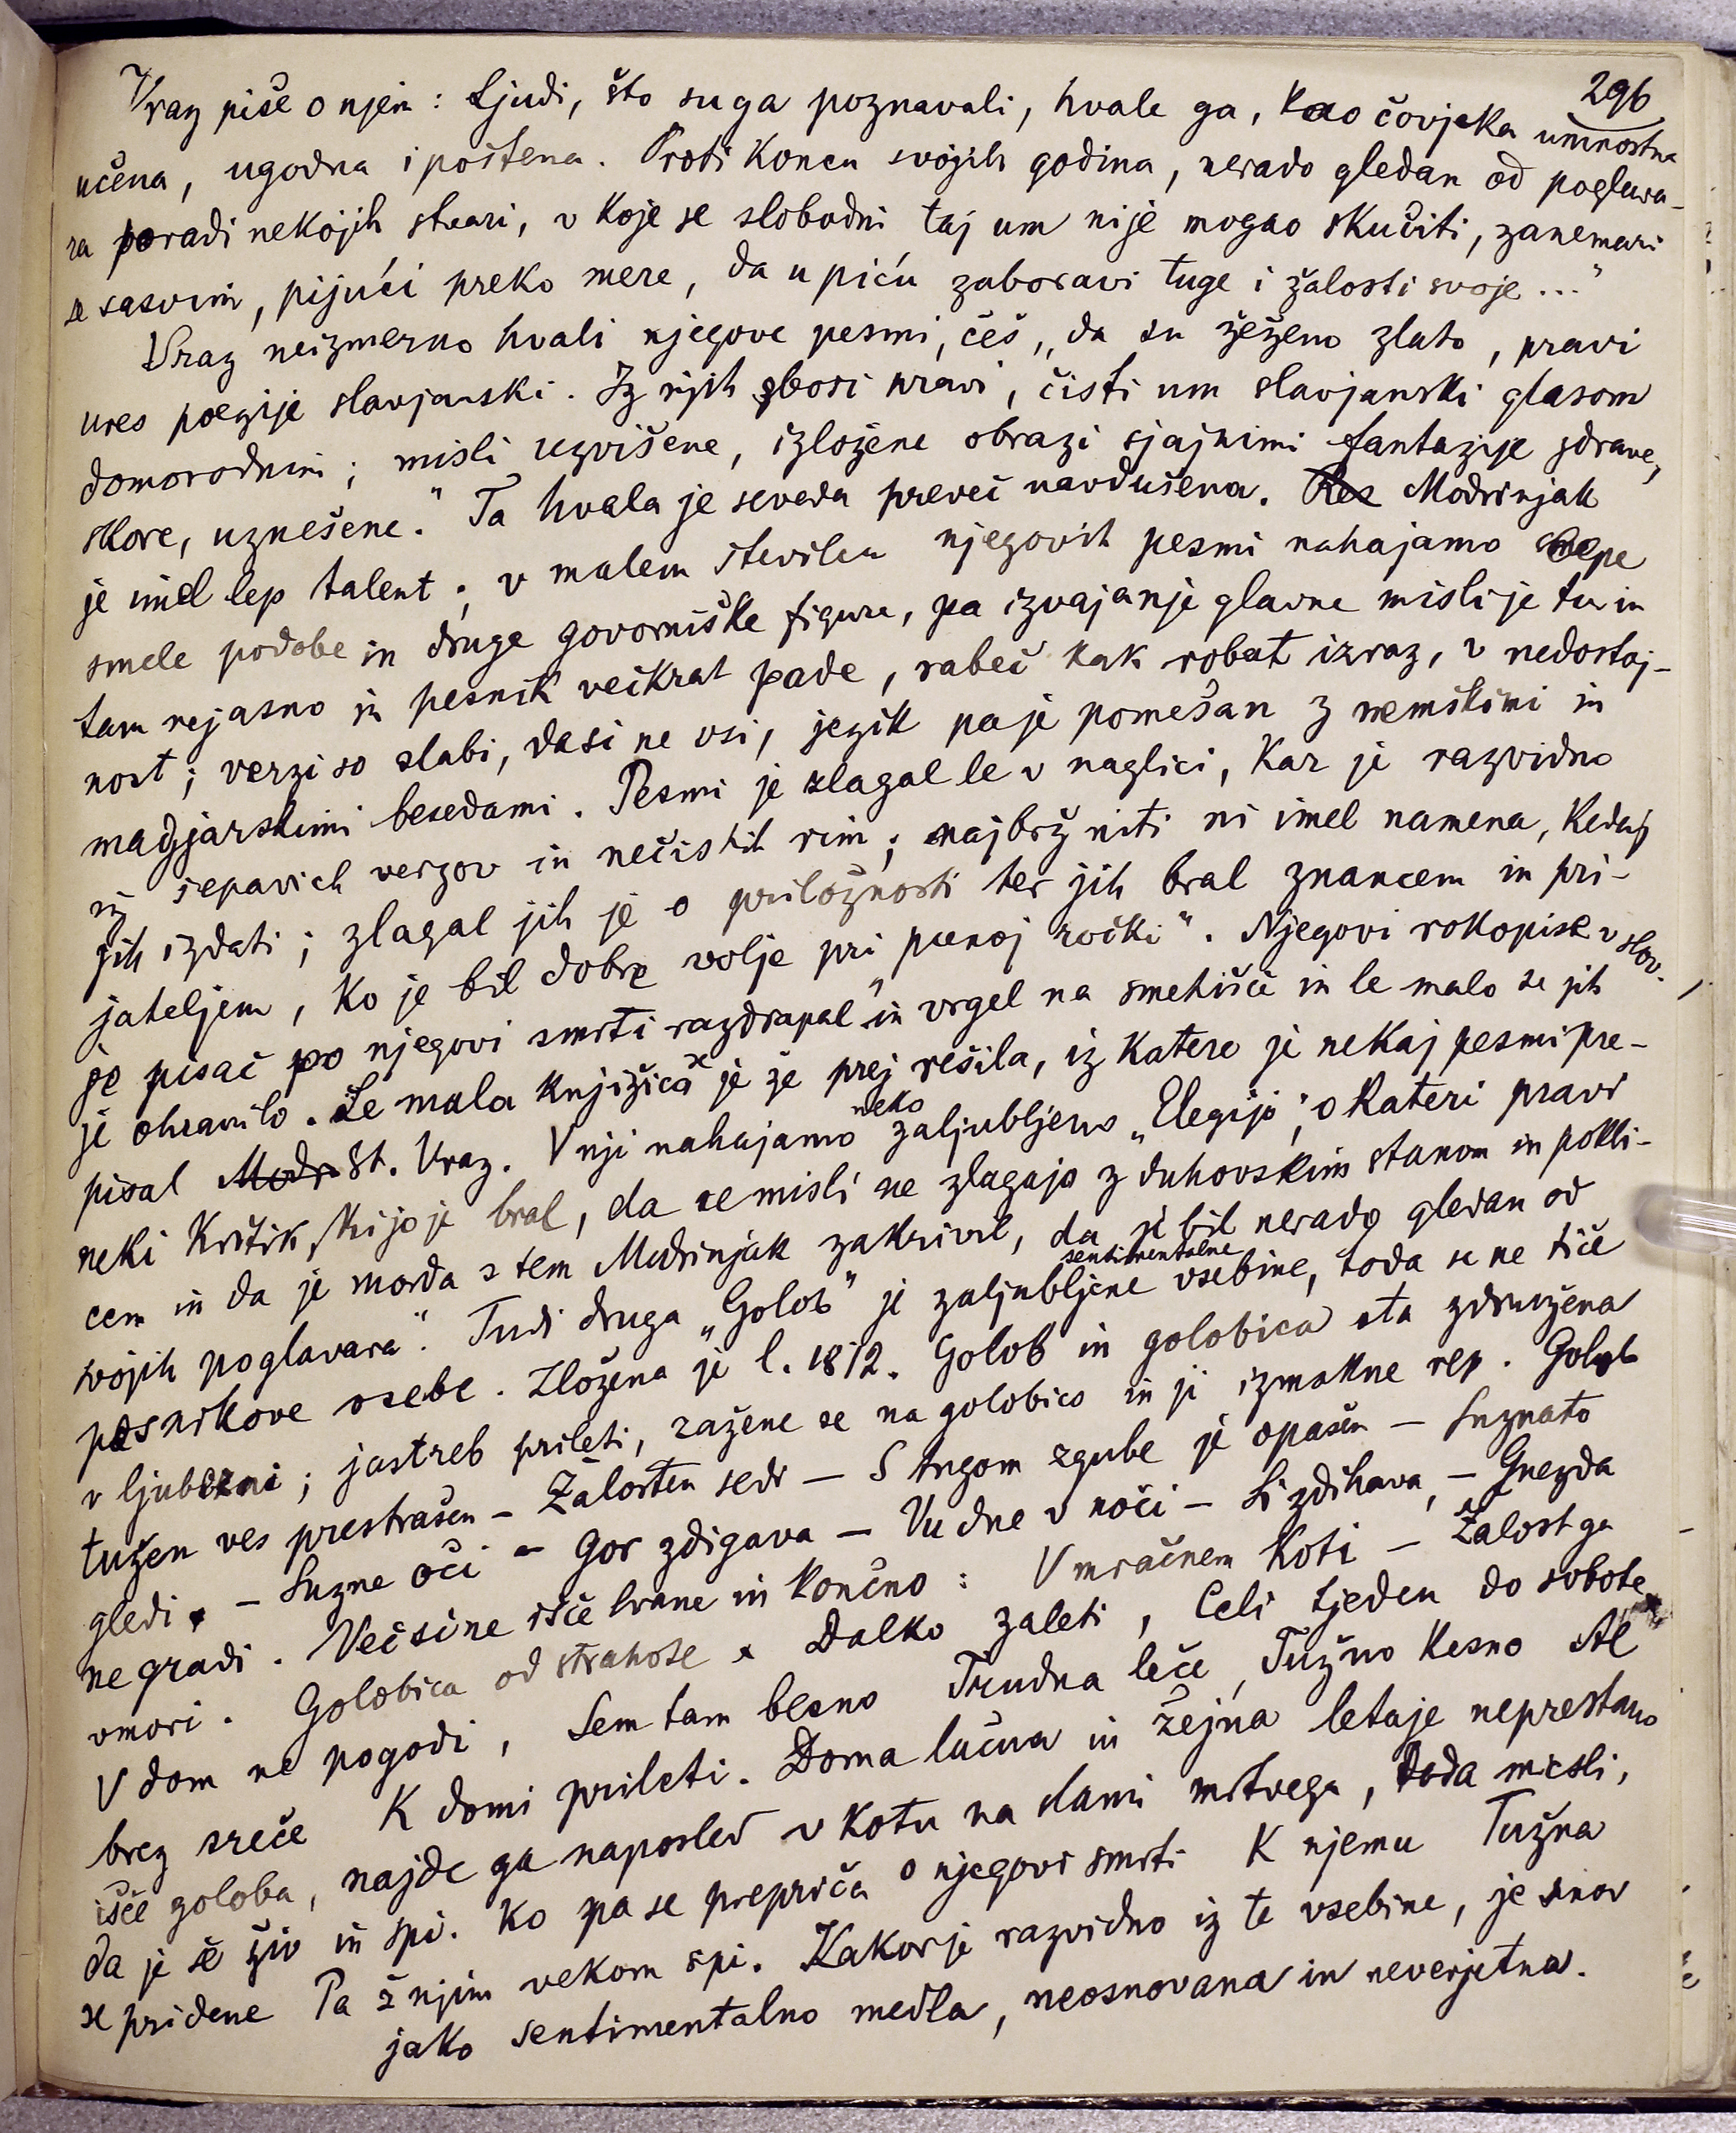 296
Vraz piše o njem : Ljudi, što su ga poznavali, hvale ga, kao čovjeka umnostna
učena, ugodna i poštena. Proti koncu svojih godina, nerado gledan od poglava-
ra poradi nekojih stvari, v koje se slobodni taj um nije mogao skučiti, zanemari
se sasvim, pijući preko mere, da u piću zaboravi tuge i žalosti svoje ..."
Vraz neizmerno hvali njegove pesmi, češ, „da su žeženo zlato, pravi
ures poezije slavjanski. Iz njih zbori pravi, čisti um slavjanski glasom
domorodnim ; misli uzvišene, izložene obrazi sjajnimi fantazije zdrave,
skore, uznešene." Ta hvala je seveda preveč navdušena. Res Modrinjak
je imel lep talent ; v malem številu njegovih pesmi nahajamo lepe
smele podobe in druge govorniške figure, pa izvajanje glavne misli je tu in
tam nejasno in pesnik večkrat pade, rabeč kak robat izraz, v nedostoj-
nost ; verzi so slabi, dasi ne vsi, jezik pa je pomešan z nemškimi in
madžjarskimi besedami. Pesmi je zlagal le v naglici, kar je razvidno
iz šepavich verzov in nečistih rim ; najbrž niti ni imel namena, kedaj
jih izdati ; zlagal jih je o priložnosti ter jih bral znancem in pri-
jateljem, ko je bil dobre volje pri „punoj ročki". Njegovi rokopise v slov.
je pisač po njegovi smrti razdrapal in vrgel na smetišče in le malo se jih
je ohranilo. Le mala knjižica se je že prej rešila, iz katere je nekaj pesmi pre-
pisal Modr. St. Vraz. V nji nahajamo neko zaljubljeno „Elegijo", o kateri pravi
neki kritik, ki jo je bral, da se misli ne zlagajo z duhovskim stanom in pokli-
cem in da je morda s tem Modrinjak zakrivil, da je bil nerado gledan od
svojih poglavara". Tudi druga „Golob" je zaljubljene sentimentalne vsebine, toda se ne tiče
pesnikove osebe. Zložena je l. 1812. Golob in golobica sta združena
v ljubezni ; jastreb prileti, zažene se na golobico in ji izmakne rep. Golob
tužen ves prestrašen – Žalosten sedi – S tugom zgube je opašen – Suznato
gledi, – Suzne oči – Gor zdigava – Vu dne v noči – Si zdihava, – Gnezda
ne gradi. Več si ne išče hrane in končno : V mračnem koti – Žalost ga
vmori. Golobica od strahote Dalko zaleti, Celi tjeden do sobote
V dom ne pogodi, Sem tam besno Trudna leče, Tužno kesno Al
brez sreče K domi prileti. Doma lačna in žejna letaje neprestano
išče goloba, najde ga naposled v kotu na slami mrtvega, toda misli,
da je še živ in spi. Ko pa se prepriča o njegovi smrti K njemu Tužna
se pridene Pa ž njim vekom spi. Kakor je razvidno iz te vsebine, je snov
jako sentimentalno medla, neosnovana in neverjetna.